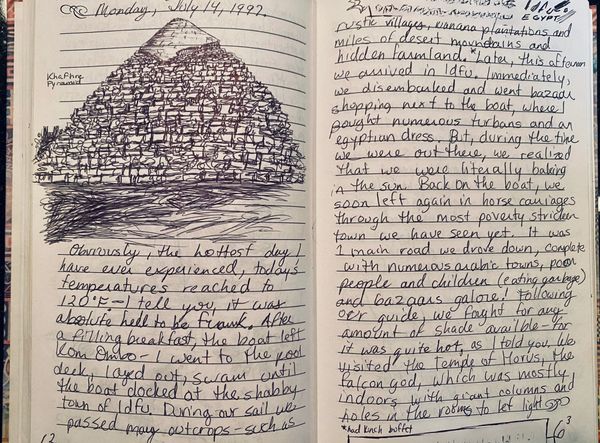 Monday, July 14, 1992.
Khafhre
Pyramid
Obviously, the hottest day I
have ever experienced, todays
temperatures reached to
120°F - I tell you, it was
absolute hell to be frank. After
a filling breakfast, the boat left
Kom Ombo - I went to the pool
deck, layed out, swam until
the boat docked at the shabby
town of Idfu. During our sail we
passed many outcrops - such as
EGYPT
rustic villages, banana plantations and
miles of desert mountains and
hidden farmland. * Later, this afternoon
we arrived in Idfu. Immediately,
we disembarked and went bazaar
shopping next to the boat, where I
bought numerous turbans and an
egyptian dress. But, during the time
we were out there, we realized
that we were literally baking
in the sun. Back on the boat, we
soon left again in horse carriages
through the most poverty stricken
town we have seen yet. It was
1 main road we drove down, complete
with numerous arabic towns, poor
people and children (eating garbage)
and bazaars galore! Following
our guide, we faught for any
amount of shade availble - for
it was quite hot, as I told you. We
visited the Temple of Horus, the
falcon god, which was mostly
indoors with giant columns and
holes in the rooms to let light
*had lunch buffet